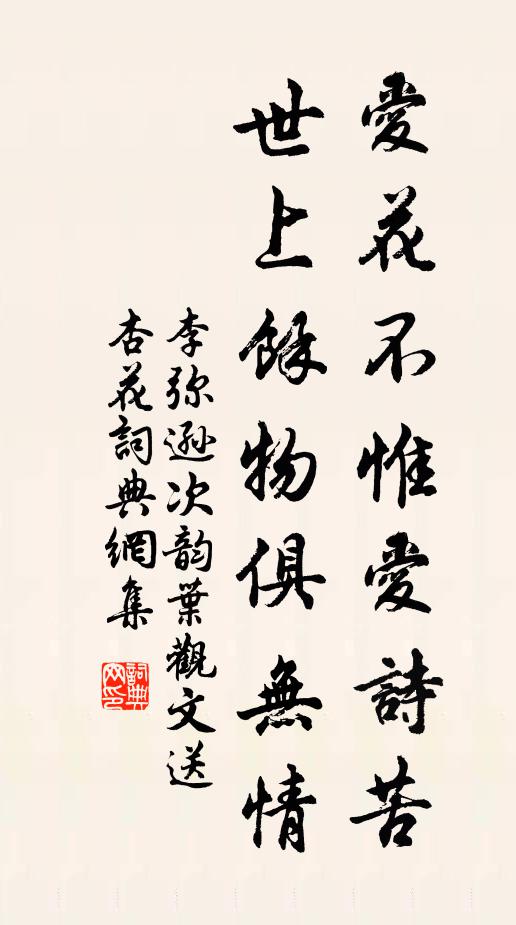 愛花不惟愛詩苦
世上餘物俱無情
李弥遜次韵葉觀文送
杏花詞典網集
詞典網印